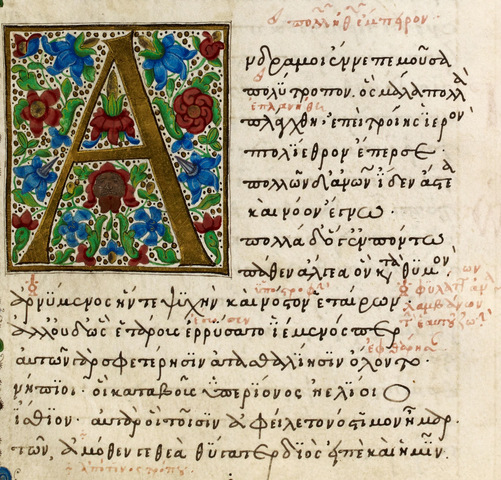 ἔμπειρον
Α
νδρα μοι ἔννεπε μοῦσα
πολύτροπον· ὃς μάλα πολλὰ
ἐπλανήθη
πλάγχθη· ἐπεὶ τροίης ἱερὸν
πτολίεθρον ἔπερσε·
πολλῶν δ' ἀνων ἴδεν ἄστεα
καὶ νόον ἔγνω·
πολλὰ δ' ὅγ' ἐν πόντω
πάθεν ἄλγεα ὃν κατὰ θυμόν·
φυλάττων
λαμβάνων
ἀρνύμενος ἥν τε ψυχὴν καὶ νόστον ἑταίρων·
ἀλλ' οὐδ' ὣς ἑτάρους ἐρρύσατο ἱέμενός περ
αὐτῶν γὰρ σφετέρησιν ἀτασθαλίησιν ὄλοντο·
νήπϊοι· οἳ κατὰ βοῦς ὑπερίονος ἠελίοιο
ἤσθιον· αὐτὰρ ὁ τοῖσιν ἀφείλετο νόστιμον ἦμαρ·
τῶν, ἁμόθεν γε θεὰ θύγατερ διὸς εἰπὲ καὶ ἡμῖν.
ἀπό τινος τρόπου